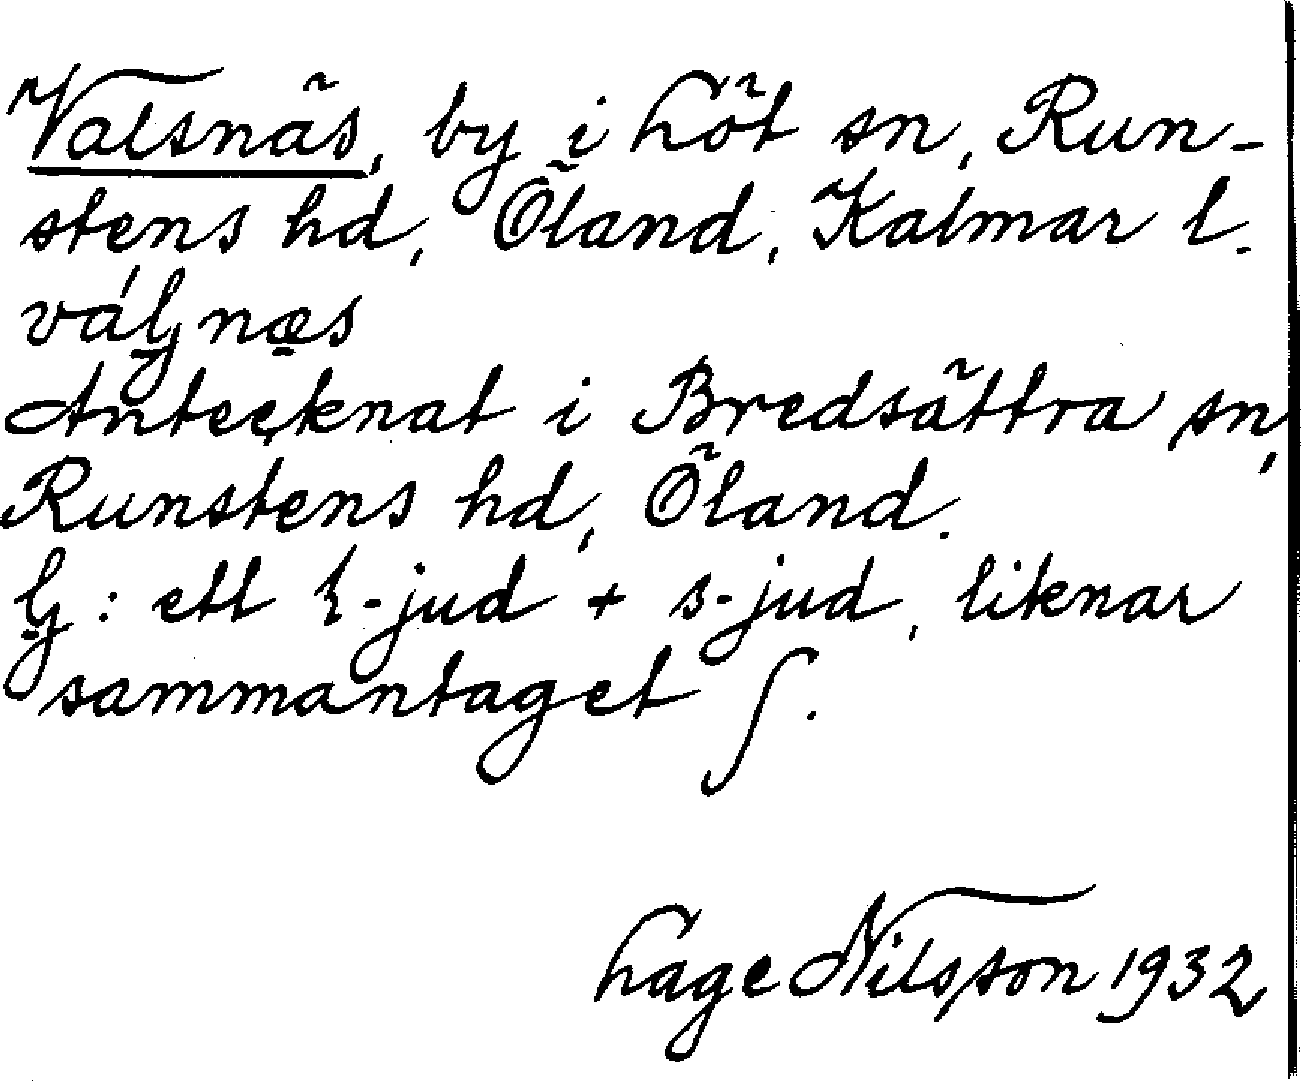 Valsnäs, by i Löt sn, Run-
stens hd, Öland, Kalmar l.
Antecknat i Bredsättra sn,
Runstens hd, Öland.
: ett l-jud + s-jud, liknar
sammantaget ʃ.
Lage Nilsson 1932